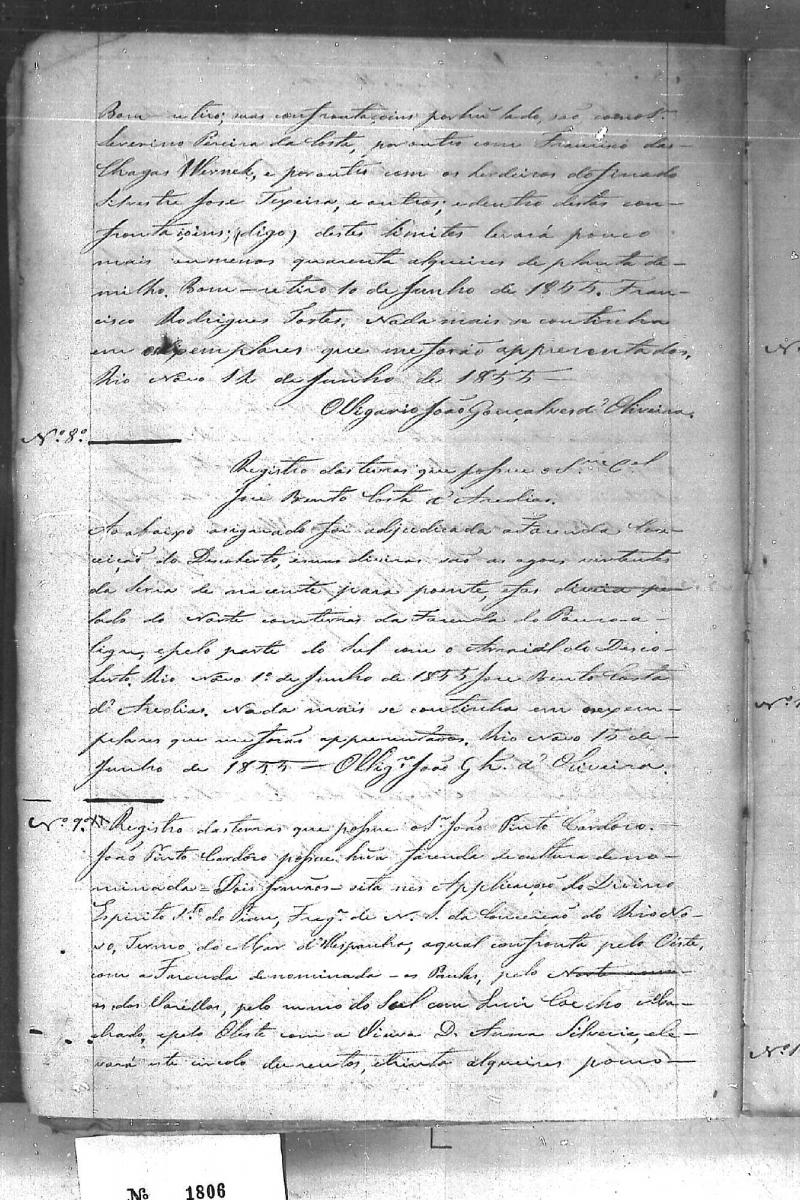 Bom retiro; suas confrontaçoins por hũ lado, são com o Sr.
Severino Pereira da Costa, por outro com Francisco das
Chagas Wernek, e por outro com os herdeiros do finado
Silvestre José Texeira, e outros; e dentro destas con-
frontaçoins; (digo) destes limites levará pouco
mais ou menos quarenta alqueires de planta de
milho. Bom-retiro 10 de Junho de 1855. Fran-
cisco Rodrigues Tostes. Nada mais se continha
em exemplares que me forão appresentados.
Rio Novo 12 de Junho de 1855
Olligario João Gonçalves d'Oliveira.
Nº 8º
Registro das terras que possue o Sr.
José Bento Costa d'Aredias.
Ao abaixo asignado foi adjudicada a Fazenda Con-
ceição do Descoberto, suas divizas são as agoas vertentes
da Serra de nacente para poente, e
lado do Norte com terras da Fazenda do Pouco-a-
legre, e pelo parte do Sul com o Arraiál do Desco-
berto. Rio Novo 1º de Junho de 1855 José Bento Costa
d'Aredias. Nada mais se continha em os exem-
pelares que me forão appresentados. Rio Novo 15 de
Junho de 1855 — Ollig.º João Glz. d'Oliveira.
Nº 9º
Registro das terras que possue o Sr. João Pinto Cardozo.
João Pinto Cardozo possue hũa fazenda de cultura deno-
minada — Dois Irmãos — sita nes Applicação do Divino
Espirito Sto. do Piau, Freg.ª de N. S. da Conceicão do Rio No-
vo, Termo do Mar d'Hespanha, a qual confronta pelo Oéste,
com a Fazenda denominada — os Pintos, pelo Norte com
os dos Varellas, pelo rumo do Sul com Luiz Coelho Ma-
chado, e pelo Oleste com a Viuva D. Anna Silveria, e le-
vará este circolo duzentos, e trinta alqueires pouco
Nº 1806